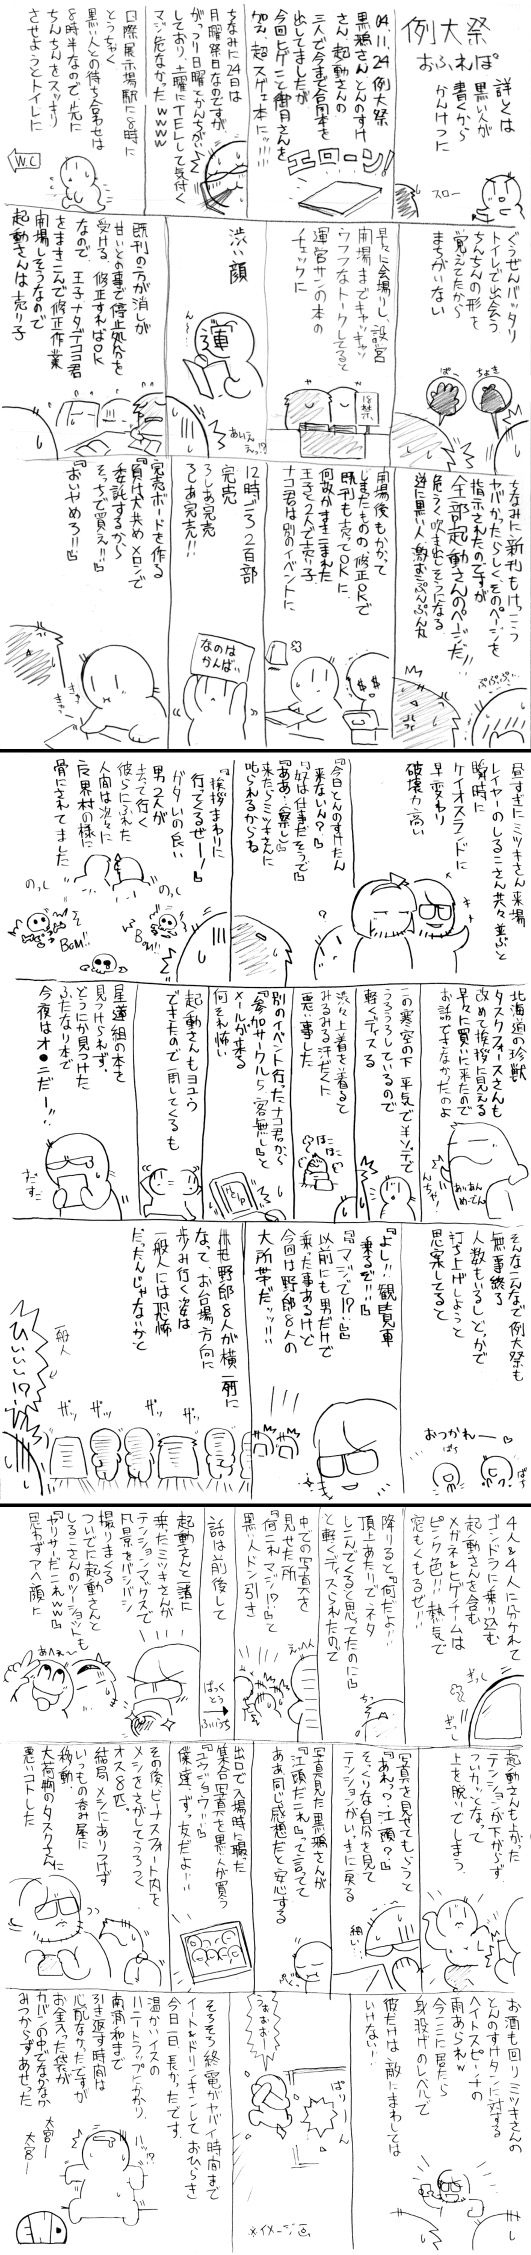 例大祭
おふれぽ
詳しくは
黒い人が
書くから
かんけつに
スロー
04.11.24 例大祭
黒鴉さん、とんのすけ
さん、起動さんの
三人で今まで合同本を
出してましたが
今回ヒゲこと御月さんを
加え超スゲェ本にッ!!!
エローン!
ちなみに24日は
月曜祭日なのですが
がっつり日曜とかんちがい
しており、土曜にTELして気付く
マジ危なかったwwww
国際展示場駅に8時に
とうちゃく
黒い人との待ち合わせは
8時半なので先に
ちんちんをスッキリ
させようとトイレに
W.C
ぐうぜんバッタリ
トイレで出会う
ちんちんの形を
覚えてたから
まちがいない
ちょき
ぱー
早々に会場入りし、設営
開場までキャッキャッ
ウフフなトークしてると
運営サンの本の
チェックに
渋い顔
運
ん〜
あいえ
えっ!?
既刊の方が消しが
甘いとの事で停止処分を
受ける 修正すればOK
なので、王子、ナタデココ君
をまきこんで修正作業
開場しそうなので
起動さんは売り子
ちなみに新刊もけっこう
ヤバかったらしく、そのページを
指示されたのですが
全部起動さんのページだ!!
危うく吹き出しそうになる
逆に黒い人、激おこぷんぷん丸
ぷぷぷ…
開場後もかかって
しまたものの修正OKで
既刊も売ってOKに
何故かすすこまれた
王子と2人で売り子
ナコ君は別のイベントに
12時ごろ2百部
完売
ろしあ完売
ろしあ完売!!
なのは
かんばい
完売ボードを作る
『負けは大決めメロンで
委託するから
そっちで買え!!』
『おいやめろ!!』
きゅっ
きゅっ
昼すぎにミツキさん来場
レイヤーのしるこさん共々並ぶと
瞬時に
ケイオスランドに
早変わり
破壊力高い
『今日とんのすけたん
来ないん?』
『奴は仕事だそうで』
『ああ…察し』
来たらミツキさんに
叱られるからね
?
『挨拶まわりに
行ってくるぜー!!』
ガタいの良い
男2人が
去って行く
彼らにふれた
人間は次々に
魔界村の様に
骨にされてました
のっし
のっし
BOM!!
BOM!!
北海道の珍獣
タスクフォースさんも
改めて挨拶に見える
早々に買いに来たので
お話できなかたのよ
あいあん
めーでん
んちゃ!
この寒空の下平気で半ソデで
うろうろしているので
軽くディスる
渋々上着を着ると
みるみる汗だくに
悪い事した
別のイベント行ったナコ君から
『参加サークル5 客無し』と
メールが来る
何それ怖い
起動さんもヨユウ
できたので一周してくるも
星蓮組の本を
見つけられず、
どうにか見つけた
ふたなり本で
今夜はオ●ニだー!!
そんなこんなで例大祭も
無事終了
人数もいるしどっかで
打ち上げしようと
思案してると
おつかれー
ぱち
ぱち
『よし!!観覧車
乗るぞ!!』
『マジっで!?』
以前にも男だけで
乗った事あるけど
今回は野郎8人の
大所帯だッ!!!
非モテ野郎8人が横一列に
なってお台場方向に
歩み行く姿は
一般人には恐怖
だったんじゃないかと
ザッ
ザッ
ザッ
ザッ
一般人
ひいいい!?
4人&4人に分かれて
ゴンドラに乗り込む
起動さんを含む
メガネ&ヒゲチームは
ピンク色!!熱気で
窓もくもるぜ!!
ぎっし
ぎっし
降りると『何だよ!!
頂上あたりでネタ
しこんでくると思ってたのに』
と軽くディスられたので
中での写真を
見せた所
『何これ マジ!?』と
黒い人ドン引き
話は前後して
ぱっく
とぅ
ふゅうち
起動さんと諸に
乗ったミキさんが
テンションマックスで
風景をバシバシ
撮りまくる
ついでに起動さんと
しるこさんのツーショットも
『ヤリサーだこれwww』
思わずアヘ顔に
あへぇ〜
起動さんも上がった
テンションが下がらず、
ついカッとなって
上を脱いでしまう。
写真を見せてもらうと
『あれっ?江頭?』
そっくりな自分を見て
テンションがいっきに戻る
細い…
写真見た黒鴉さんが
『江頭だこれ』って言ってて
ああ同じ感想だと安心する
出口で入場時に撮た
集合写真を黒い人が買う
『ユウジョウ!!』
僕達ずッ友だよ!!
その後ビーナスフォート内を
メシをさがしてうろつく
オス8匹。
結局、メシにありつけず
いつもの呑み屋に
移動
大荷物のタスクさんに
悪いコトした
お酒も回りミキさんの
とんのすけタンに対する
ヘイトスピーチの
雨あられw
今ここに居たら
身投げのレベルで
彼だけは敵にまわしては
いけない!
ぱりーん
うおぉぉー
※イメージ画
そろそろ終電がヤバイ時間まで
イート&ドリンキンして おひらき
今日一日、長かったです。
温かいイスの
ハニートラップにかかり
南浦和まで
引き返す時間は
心配なかたですが
お金入った袋が
カバンの中でなかなか
みつからずあせった
ハッ!?
大宮ー
大宮ー